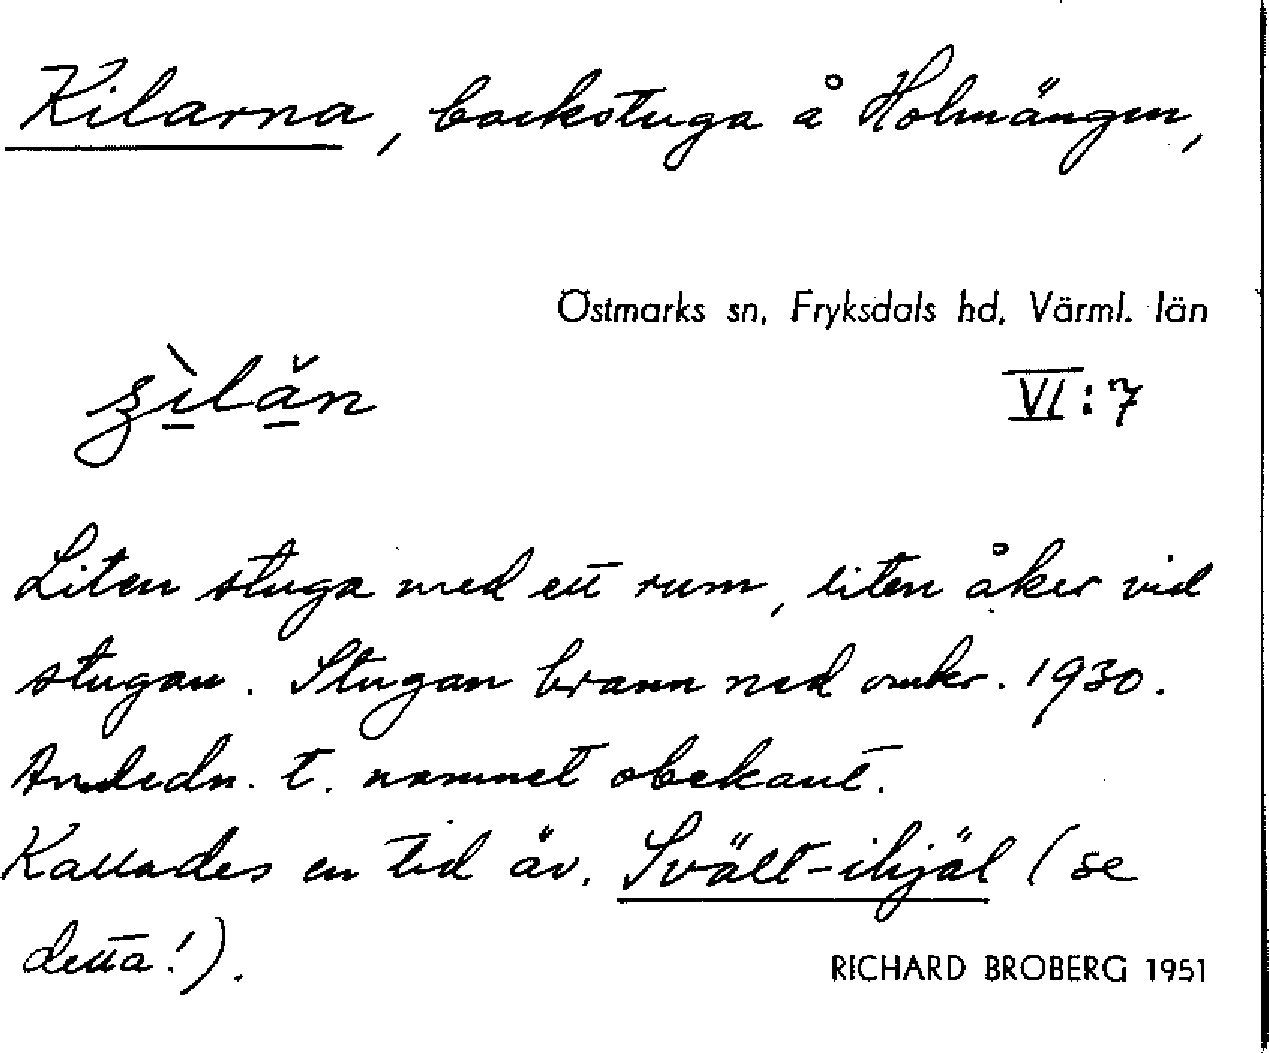 Kilarna, backstuga å Holmängen,
Östmarks sn, Fryksdals hd, Värml. län
VI:7
Liten stuga med ett rum, liten åker vid
stugan. Stugan brann ned omkr. 1930.
Anledn. t. namnet obekant.
Kallades en tid äv. Svält-ihjäl (se
detta!).
RICHARD BROBERG 1951